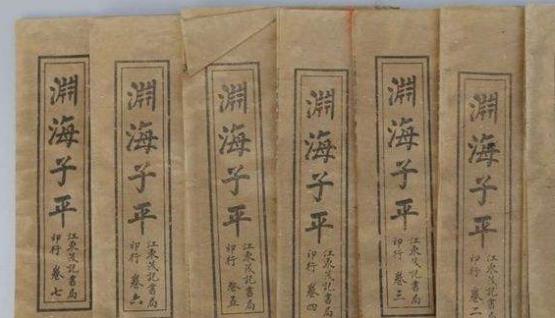 淵海子平
江東茂記書局
印行 卷二
淵海子平
江東茂記書局
印行 卷三
淵海子平
江東茂記書局
印行 卷四
淵海子平
江東茂記書局
印行 卷五
淵海子平
江東茂記書局
印行 卷六
淵海子平
江東茂記書局
印行 卷七